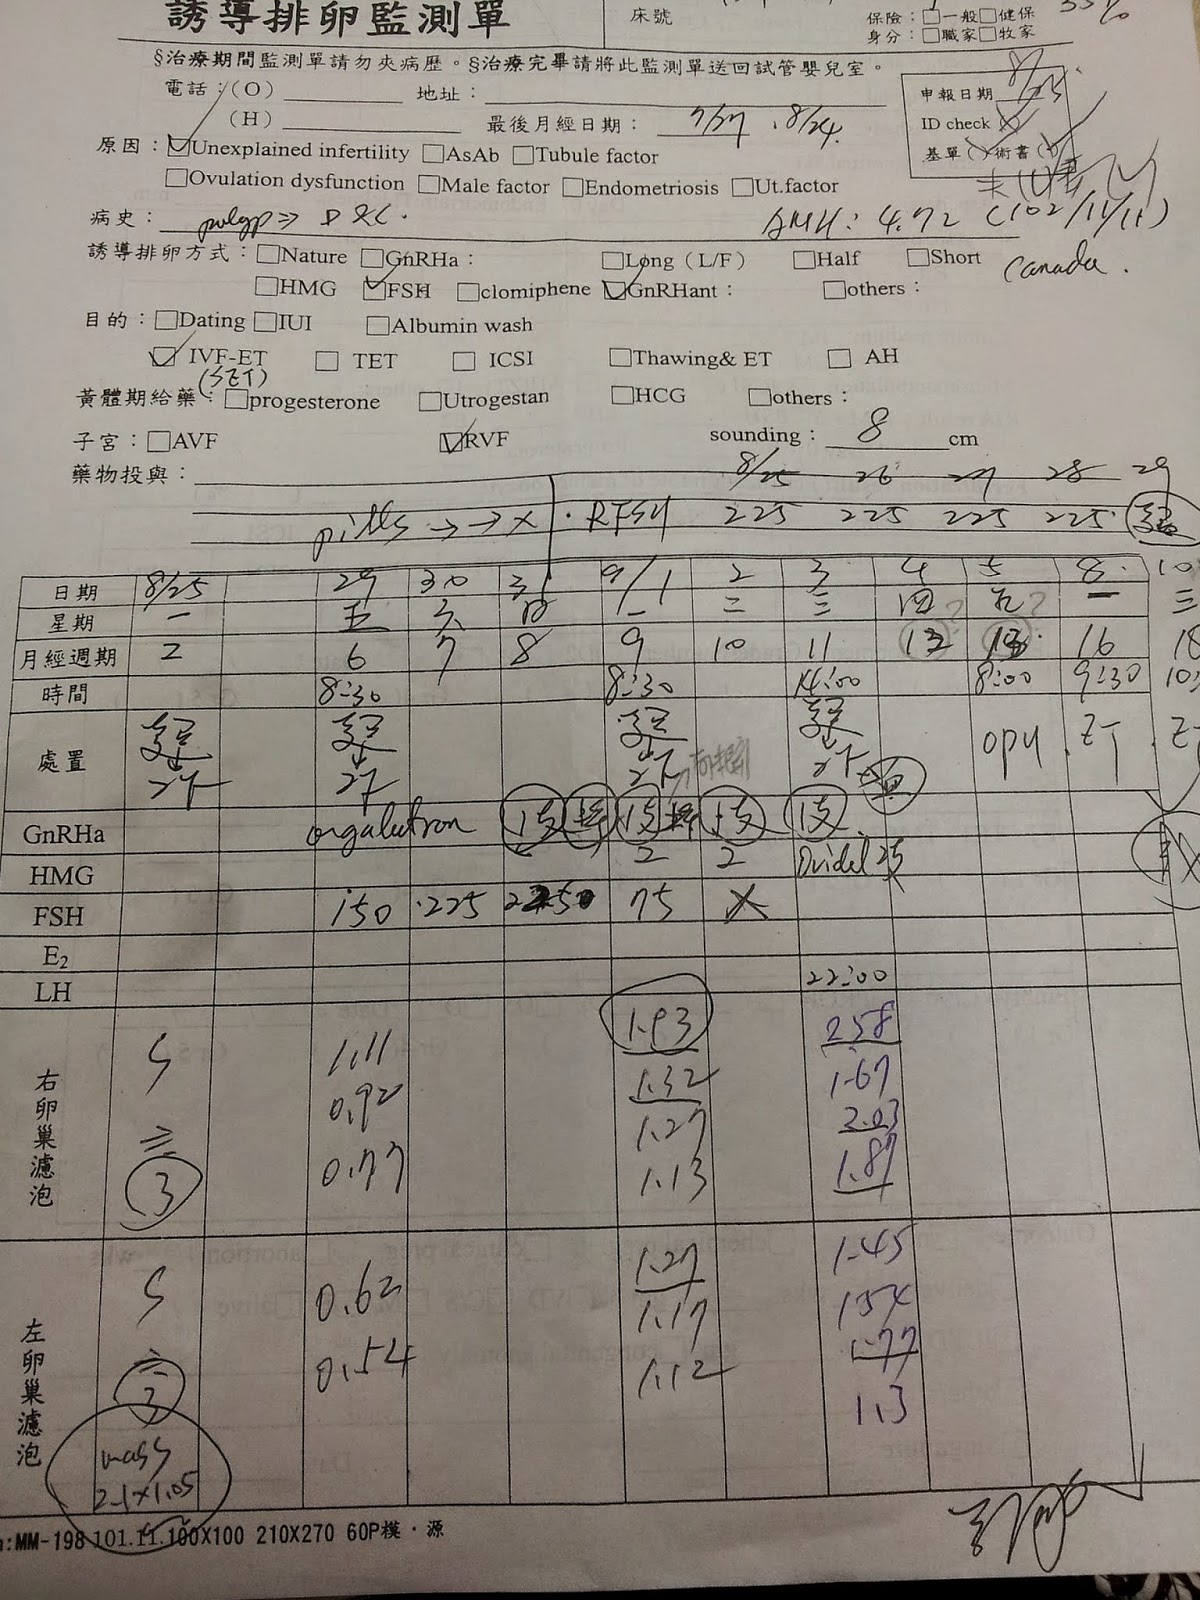 誘導排卵監測單
床號
保險：□一般□健保
身分：□職家□牧家
§治療期間監測單請勿夾病歷。§治療完畢請將此監測單送回試管嬰兒室。
電話：(O) 地址：
申報日期 8/25
(H) 最後月經日期： 7/27 . 8/24.
ID check ( )
基單( )術書( )
原因：☑Unexplained infertility □AsAb □Tubule factor
□Ovulation dysfunction □Male factor □Endometriosis □Ut.factor
病史： polyp⇒ D&C. AMH: 4.72 (102/11/11)
Canada.
誘導排卵方式：□Nature □GnRHa： □Long（L/F） □Half □Short
□HMG ☑FSH □clomiphene ☑GnRHant： □others：
目的：□Dating □IUI □Albumin wash
☑IVF-ET □ TET □ ICSI □Thawing& ET □ AH
(SET)
黃體期給藥：□progesterone □Utrogestan □HCG □others：
子宮：□AVF ☑RVF sounding： 8 cm
8/25 26 27 28 29
藥物投與：
pills →→X . RFSH 225 225 225 225.
日期 8/25 29 30 31 9/1 2 3 4 5 8 10
星期 一 五 六 日 一 二 三 四? 五? 一 三
月經週期 2 6 7 8 9 10 11 12 13 16 18
時間 8:30 8:30 14:00 8:00 9:30 10:
處置 2F 2F 2F 2F opu . ET .
GnRHa orgalutron 1支 1支 1支 1支
HMG 2 2 Ovidrel 2支
FSH 150 .225 75 X
E₂
LH 22:00
右卵巢濾泡 S 1.11 1.93 2.58
0.92 1.32 1.67
≥ 1.27 2.03
3 0.77 1.13 1.87
左卵巢濾泡 S 0.62 1.27 1.45
1.17 1.54
0.54 1.12 1.77
1.3
mass
2.1x1.05
:MM-198 101.11.100X100 210X270 60P模．源